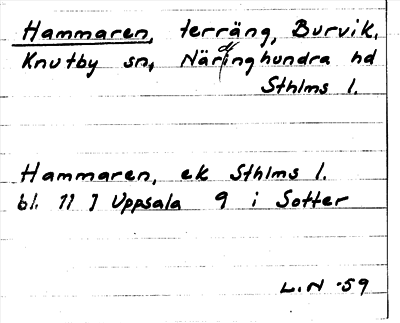 Hammaren, terräng, Burvik,
Knutby sn, Närdinghundra hd
Sthlms l.
Hammaren, ek Sthlms l.
bl. 11 I Uppsala 9 i Sotter
L.N -59